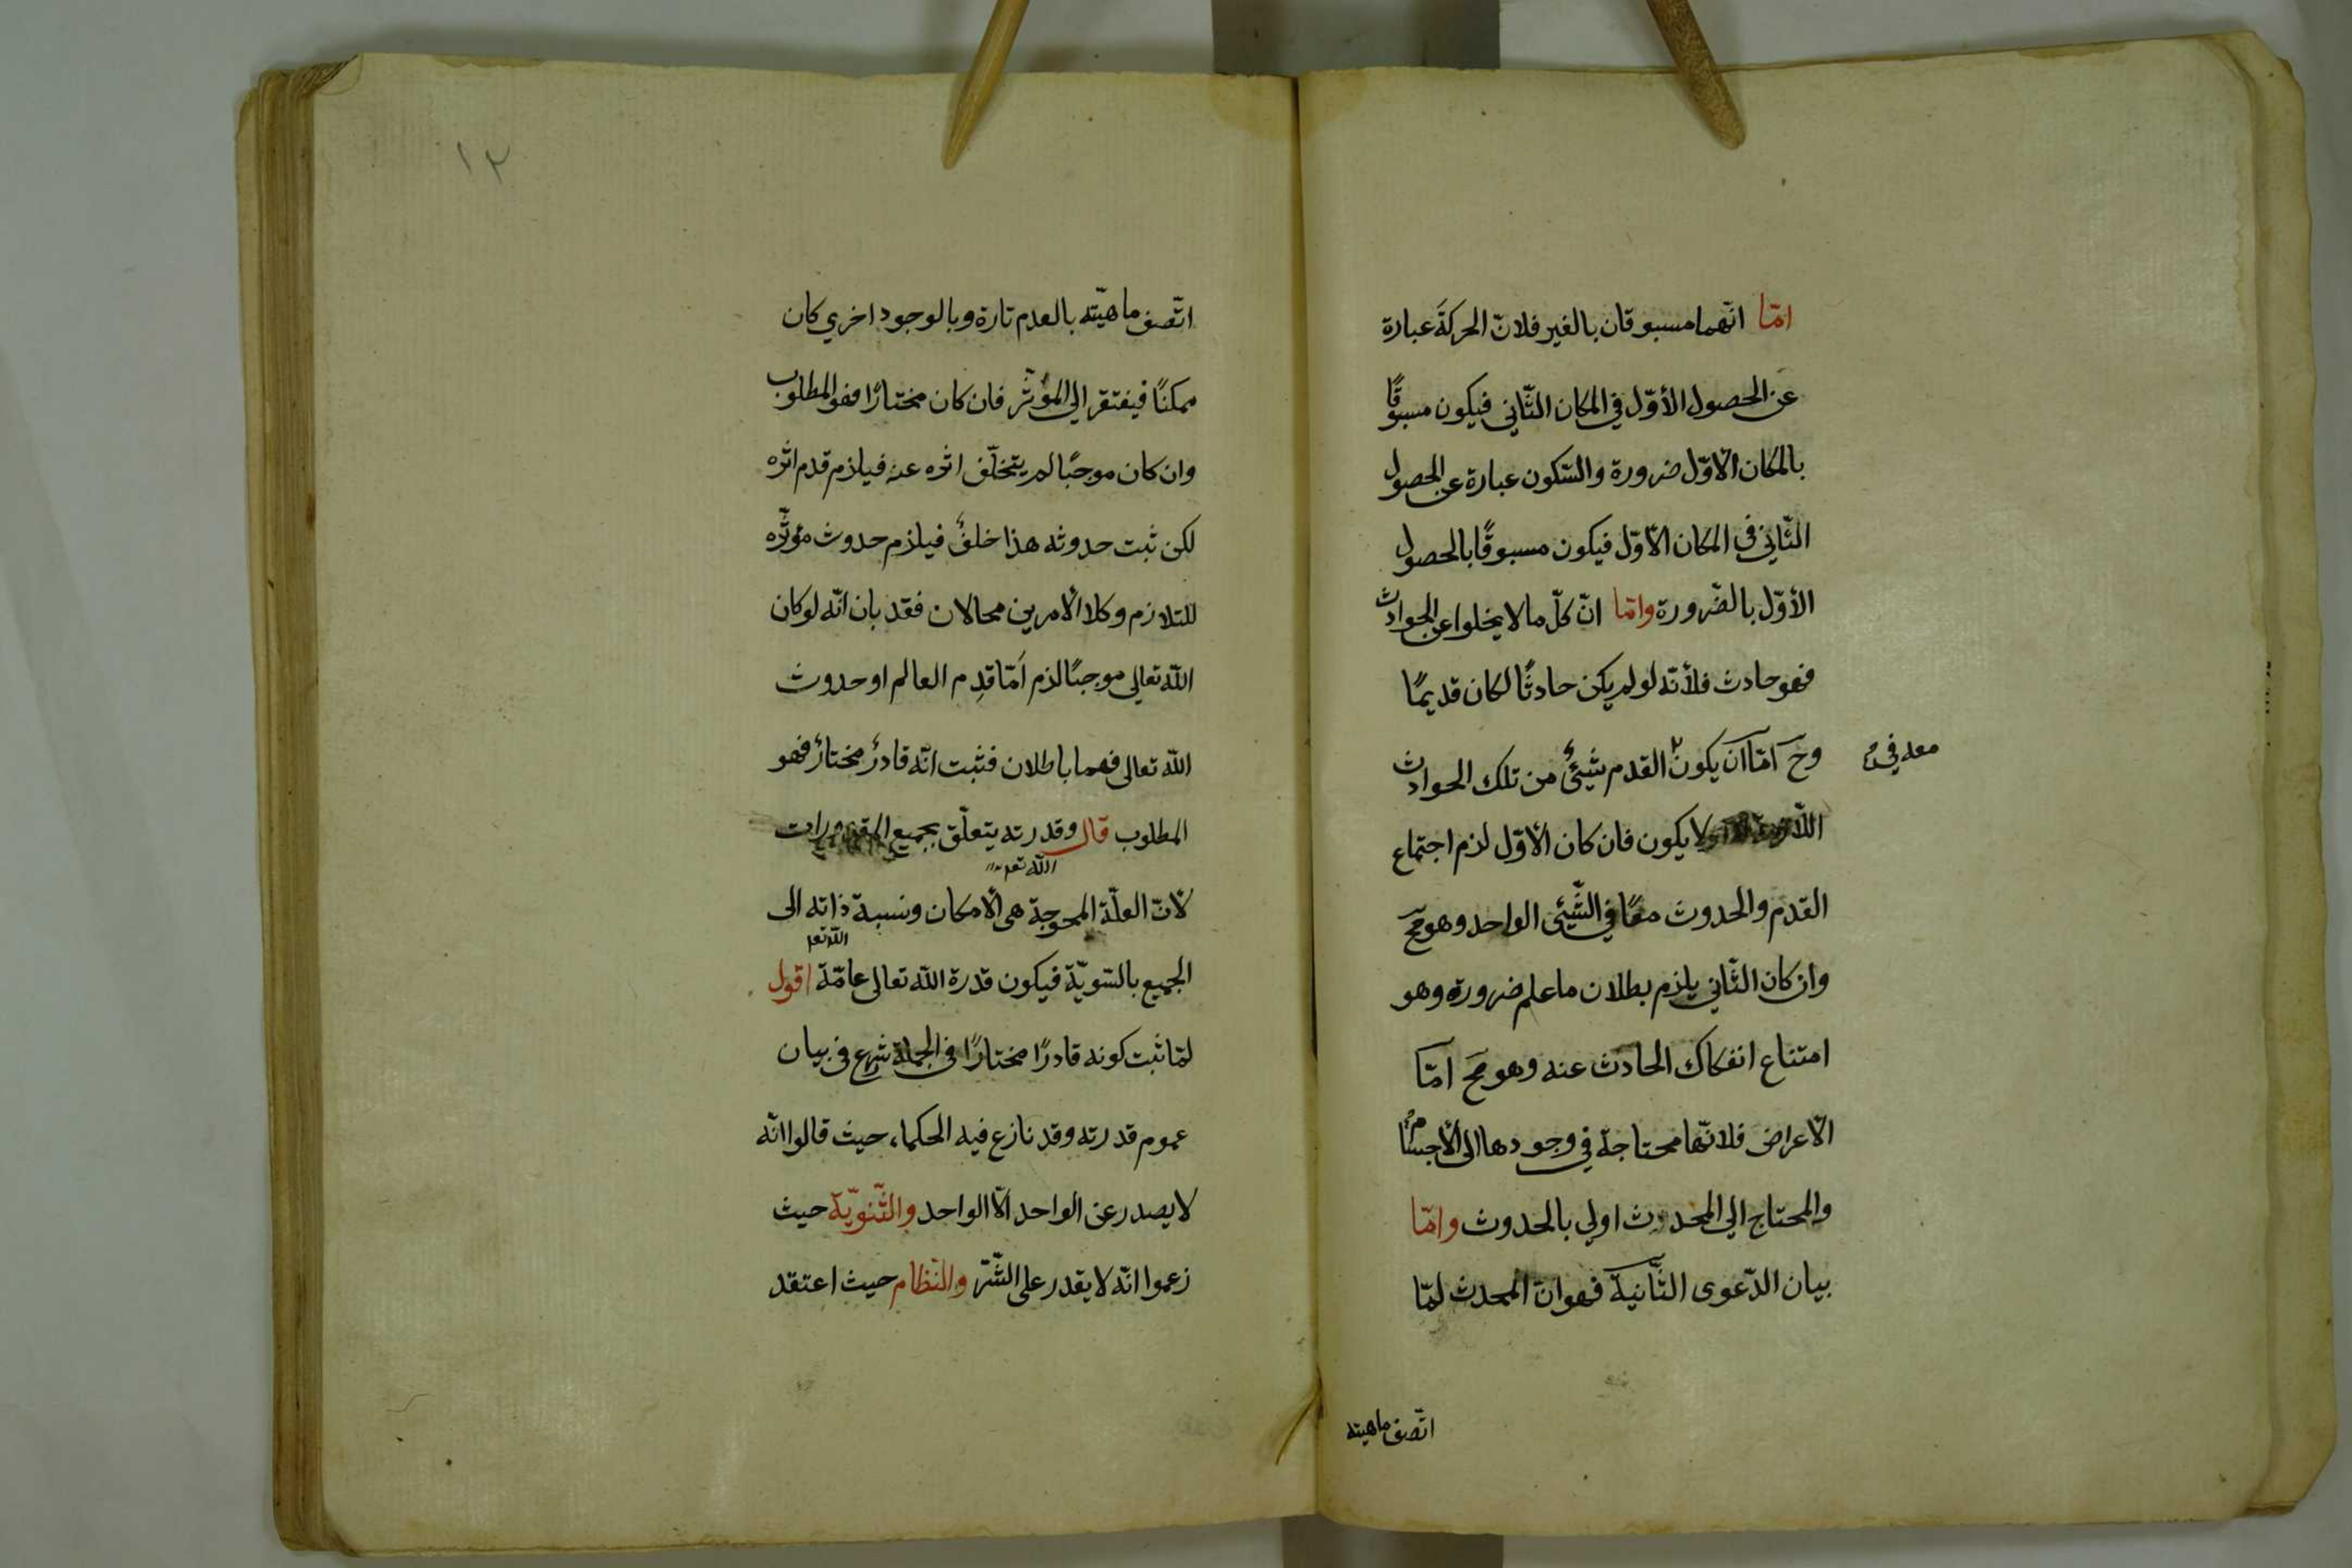 امّا انّهما مسبوقان بالغير فلانّ الحركةَ عبارة
عن الحصول الأوّل في المكان الثّاني فيكون مسبوقًا
بالمكان الاوّل ضرورة والسّكون عبارة عن الحصول
الثّاني في المكان الاوّل فيكون مسبوقًا بالحصول
الأوّل بالضّرورة وامّا انّ كلّ ما لا يخلوا عن الحوادث
فهو حادث فلأنّه لو لم يكن حادثًا لكان قديمًا
وح امّا ان يكون القدم شيئٌ من تلك الحوادث
معه في
لا يكون فان كان الأوّل لزم اجتماع
القدم والحدوث معًا في الشّيئى الواحد وهو مح
وان كان الثّاني يلزم بطلان ما علم ضرورة وهو
امتناع انفكاك الحادث عنه وهو مح امّا
الأعراض فلانّها محتاجة في وجودها الى الأجسام
والمحتاج الي المحدث اولي بالحدوث وامّا
بيان الدّعوى الثّانية فهو انّ المحدث لمّا
اتّصف ماهيته
١٢
اتّصف ماهيّته بالعدم تارة وبالوجود اخري كان
ممكنًا فيفتقر الي المؤثّر فان كان مختارًا فهو المطلوب
وان كان موجبًا لم يتخلّف اثره عنه فيلزم قدم اثره
لكن ثبت حدوثه هذا خلفٌ فيلزم حدوث مؤثّره
للتلازم وكلا الأمرين محالان فقد بان انّه لو كان
اللّه تعالي موجبًا لزم امّا قدم العالم او حدوث
اللّه تعالى فهما باطلان فثبت انّه قادرٌ مختارٌ فهو
المطلوب قال وقدرته يتعلّق بجميع المقدورات
اللّه تعم
لأنّ العلّة المحوجة هى الأمكان ونسبة ذاته الى
اللّه تعم
الجميع بالسّويّة فيكون قدرة اللّه تعالى عامّة اقول
لمّا ثبت كونه قادرًا مختارًا في الجملة شرع في بيان
عموم قدرته وقد نازع فيه الحكماء حيث قالوا انّه
لا يصدر عن الواحد الّا الواحد والثّنويّة حيث
زعموا انّه لا يقدر على الشّرّ والنّظام حيث اعتقد